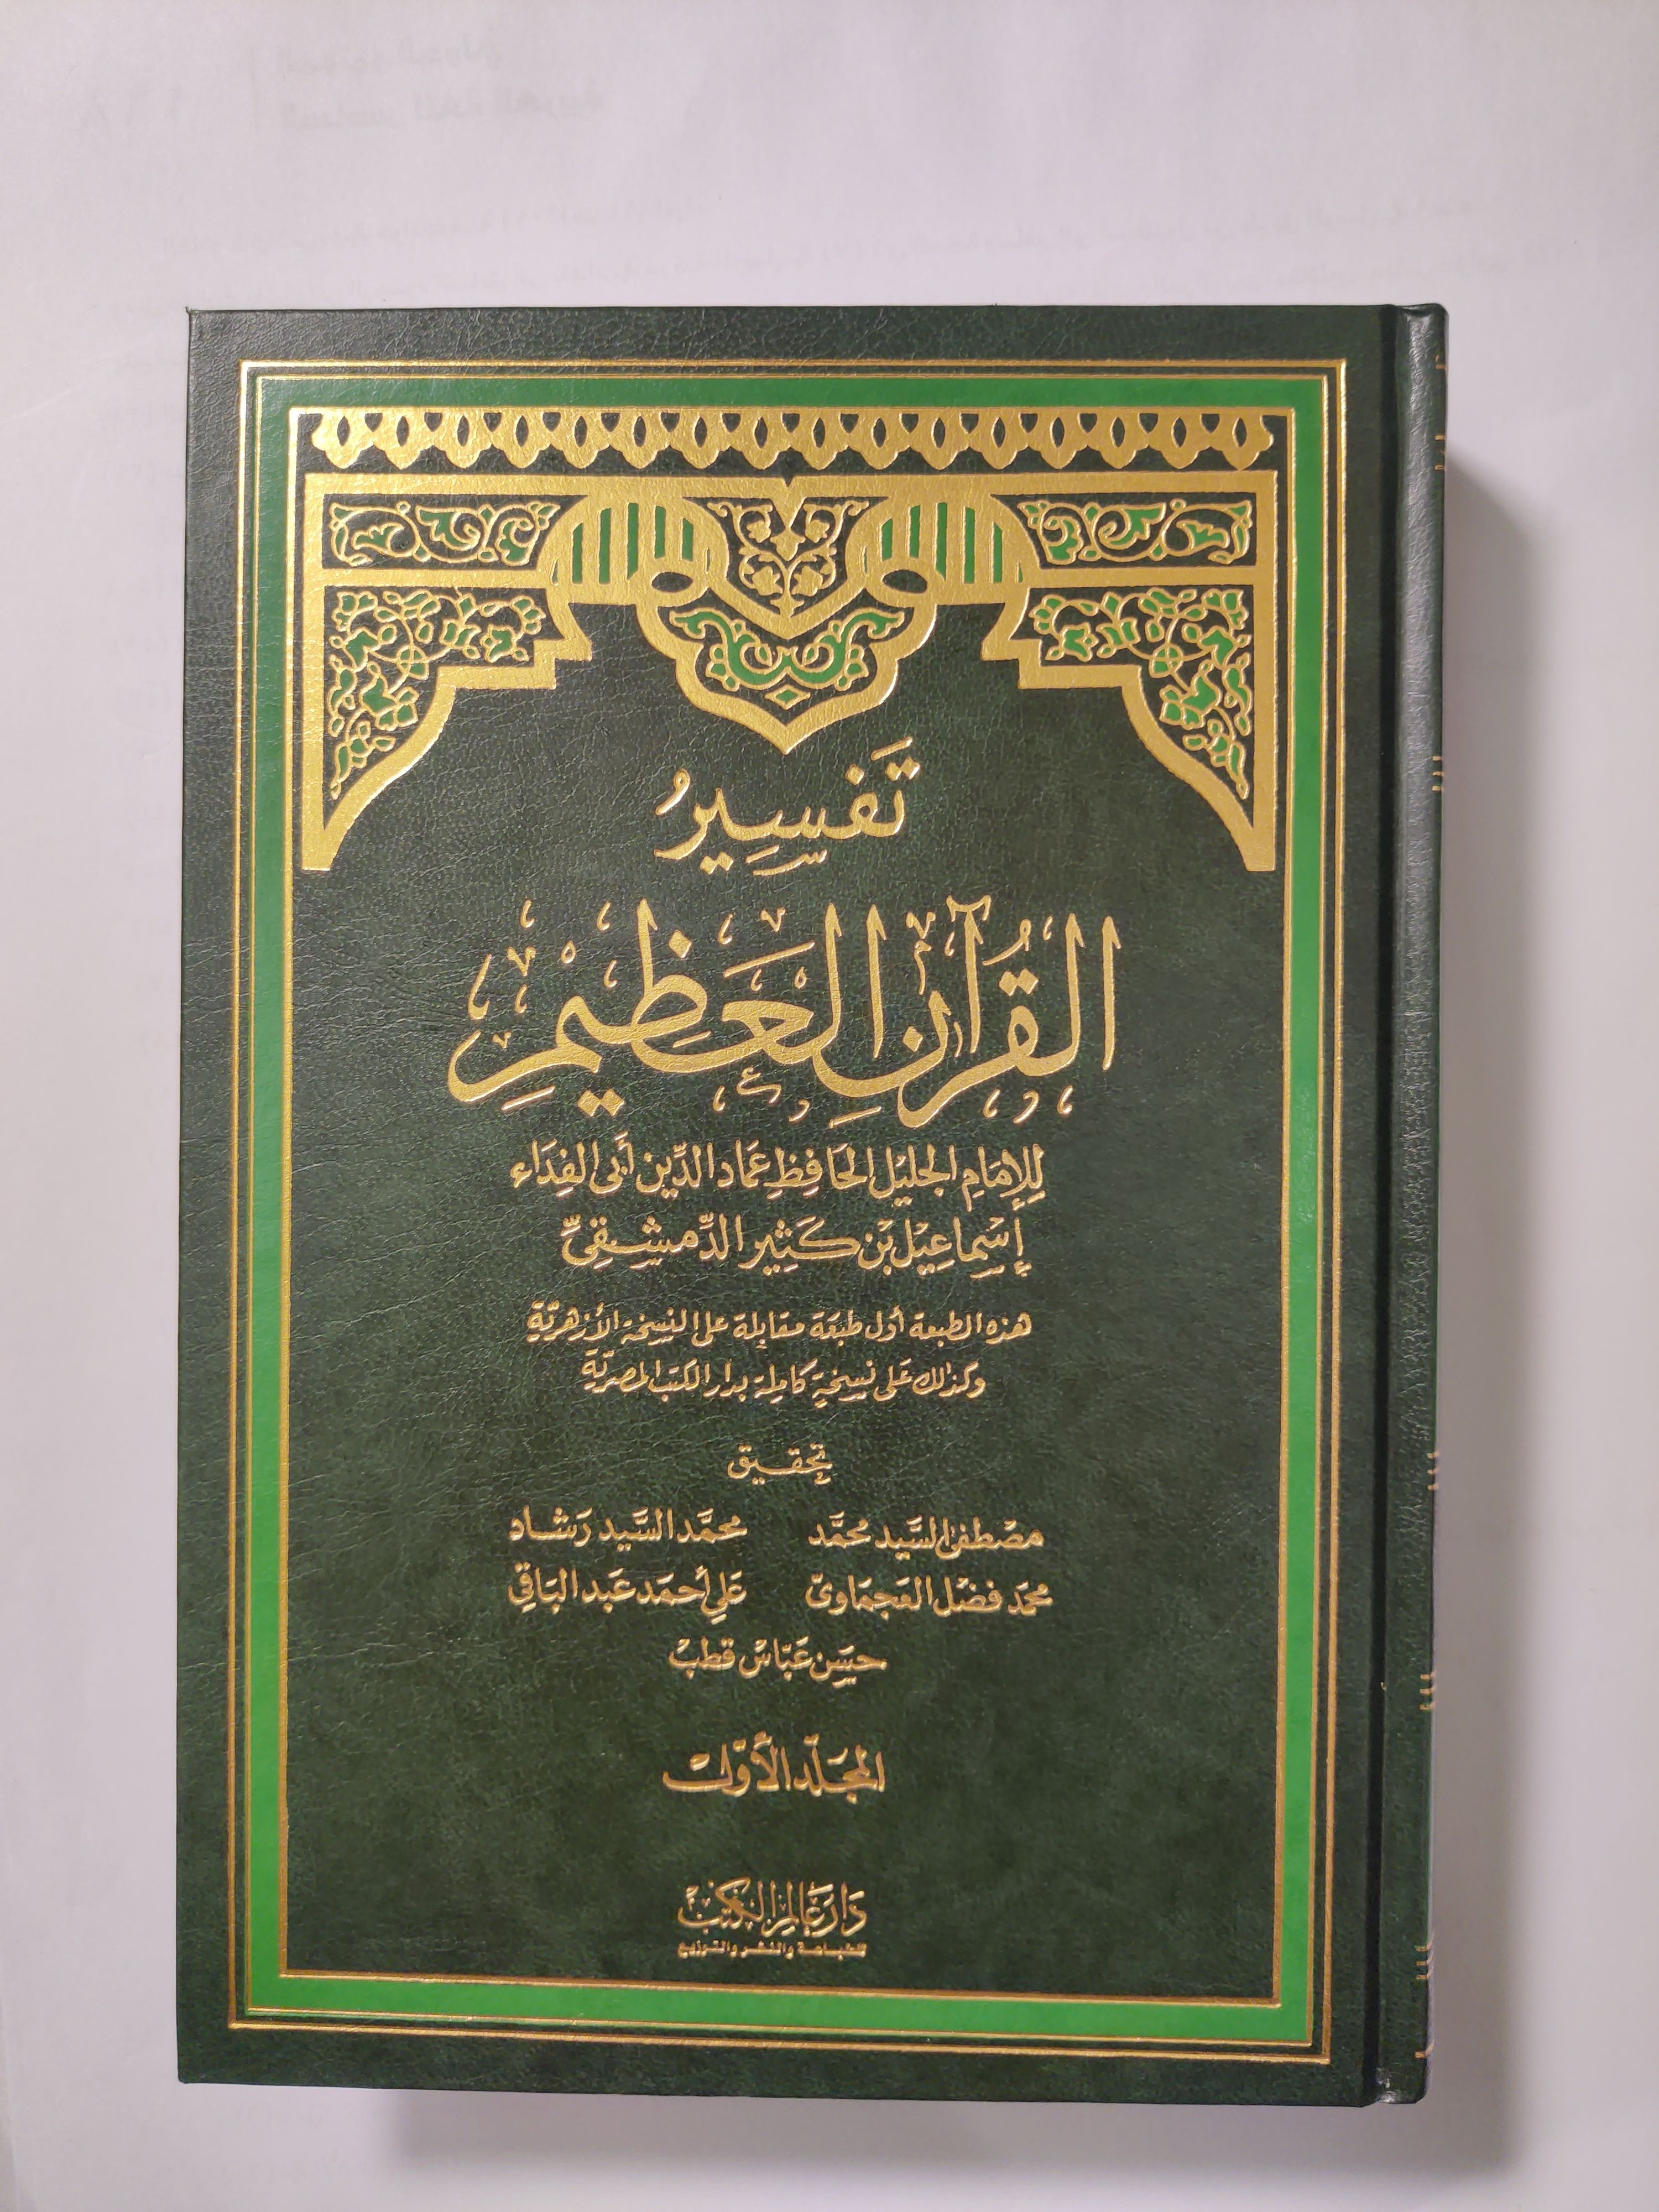 تَفسِيرُ
القُرآنِ العَظِيمِ
لِلإمَامِ الجَليْل الحَافِظِ عمَاد الدِّين أبَى الفِدَاء
إسْمِاعِيْل بْن كَثِير الدِّمشِقِىِّ
هذه الطبعة أول طبعَة مقابلة على النسِخة الأزهريّةِ
وكذلك عَلى نسِخةٍ كامِلة بدار الكتب المصريّةِ
تحقِيق
مصْطفىٰ السَّيد محمَّد محمَّد السَّيد رَشاد
محمَد فضْل العَجمَاوىّ عَلي أحمَد عَبد البَاقي
حسَن عَبّاسْ قطبْ
المجَلّد الأوّل
دَار عَالم الكتبْ
للطباعة والنشر والتوزيع